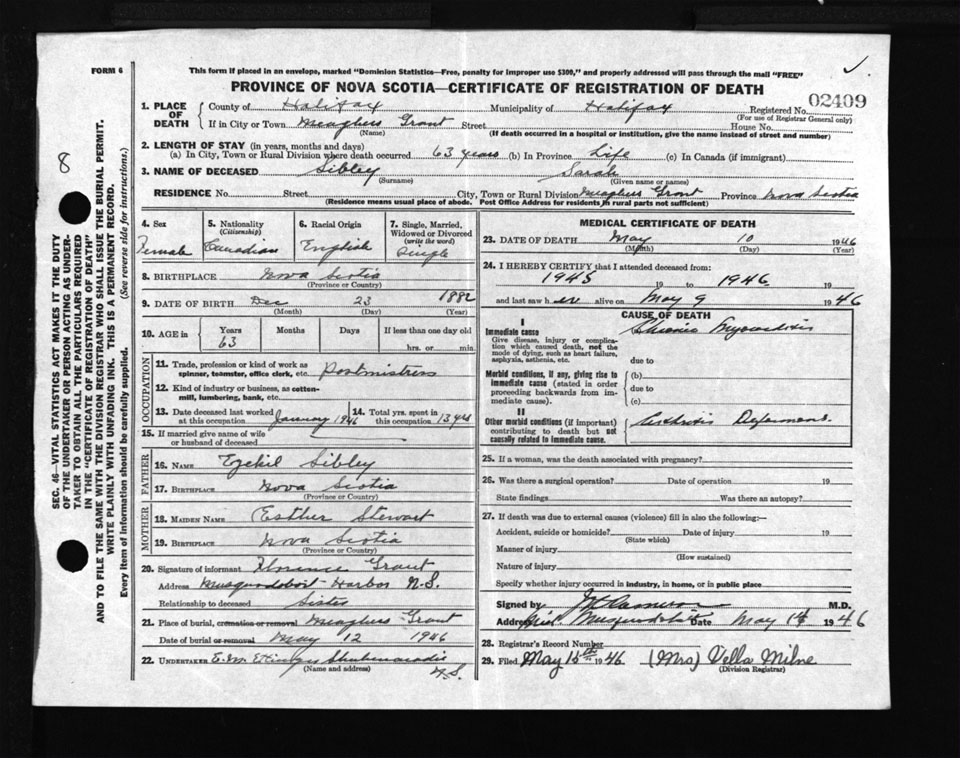 FORM 6
This form if placed in an envelope, marked "Dominion Statistics—Free, penalty for improper use $300," and properly addressed will pass through the mail "FREE"
PROVINCE OF NOVA SCOTIA—CERTIFICATE OF REGISTRATION OF DEATH
02409
8
SEC. 46—VITAL STATISTICS ACT MAKES IT THE DUTY
OF THE UNDERTAKER OR PERSON ACTING AS UNDER-
TAKER TO OBTAIN ALL THE PARTICULARS REQUIRED
IN THE "CERTIFICATE OF REGISTRATION OF DEATH"
AND TO FILE THE SAME WITH THE DIVISION REGISTRAR WHO SHALL ISSUE THE BURIAL PERMIT.
WRITE PLAINLY WITH UNFADING INK. THIS IS A PERMANENT RECORD.
Every item of information should be carefully supplied. (See reverse side for instructions.)
1. PLACE OF DEATH County of Halifax Municipality of Halifax Registered No.
(For use of Registrar General only)
If in City or Town Meaghers Grant Street House No.
(Name) (If death occurred in a hospital or institution, give the name instead of street and number)
2. LENGTH OF STAY (in years, months and days)
(a) In City, Town or Rural Division where death occurred 63 years (b) In Province Life (c) In Canada (if immigrant)
3. NAME OF DECEASED Sibley Sarah
(Surname) (Given name or names)
RESIDENCE No. Street City, Town or Rural Division Meaghers Grant Province Nova Scotia
(Residence means usual place of abode. Post Office Address for residents in rural parts not sufficient)
4. Sex Female
5. Nationality (Citizenship) Canadian
6. Racial Origin English
7. Single, Married, Widowed or Divorced (write the word) Single
8. BIRTHPLACE Nova Scotia
(Province or Country)
9. DATE OF BIRTH Dec 23 1882
(Month) (Day) (Year)
10. AGE in Years 63 Months Days If less than one day old hrs. or min.
OCCUPATION
11. Trade, profession or kind of work as spinner, teamster, office clerk, etc. Postmistress
12. Kind of industry or business, as cotton-mill, lumbering, bank, etc.
13. Date deceased last worked at this occupation January 1946
14. Total yrs. spent in this occupation 13 yrs
15. If married give name of wife or husband of deceased
FATHER
16. NAME Ezekiel Sibley
17. BIRTHPLACE Nova Scotia
(Province or Country)
MOTHER
18. MAIDEN NAME Esther Stewart
19. BIRTHPLACE Nova Scotia
(Province or Country)
20. Signature of informant Florence Grant
Address Musquodoboit Harbor N.S.
Relationship to deceased Sister
21. Place of burial, cremation or removal Meaghers Grant
Date of burial or removal May 12 1946
22. UNDERTAKER E. M. Ettinger Shubenacadie
(Name and address) N.S.
MEDICAL CERTIFICATE OF DEATH
23. DATE OF DEATH May 10 1946
(Month) (Day) (Year)
24. I HEREBY CERTIFY that I attended deceased from:
1945 19 to 1946 19
and last saw her alive on May 9 1946
CAUSE OF DEATH
I
Immediate cause Chronic Myocarditis
Give disease, injury or complication which caused death, not the mode of dying, such as heart failure, asphyxia, asthenia, etc. due to
Morbid conditions, if any, giving rise to immediate cause (stated in order proceeding backwards from immediate cause). (b) due to (c)
II
Other morbid conditions (if important) contributing to death but not causally related to immediate cause. Arthritis Deformans
25. If a woman, was the death associated with pregnancy?
26. Was there a surgical operation? Date of operation 19
State findings Was there an autopsy?
27. If death was due to external causes (violence) fill in also the following:—
Accident, suicide or homicide? Date of injury 19
(State which)
Manner of injury
(How sustained)
Nature of injury
Specify whether injury occurred in industry, in home, or in public place
Signed by M.D.
Address Musquodoboit Date May 1946
28. Registrar's Record Number
29. Filed May 15th 1946 (Mrs) Vella Milne
(Division Registrar)